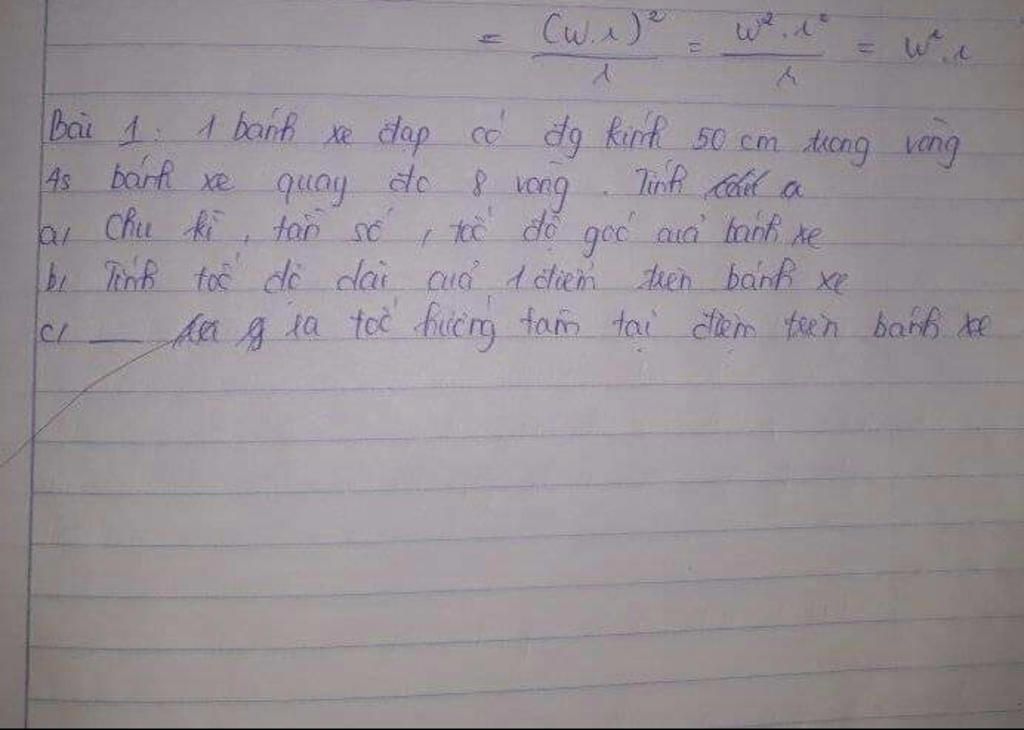 = (w.r)² / r = w².r² / r = w².r
Bài 1: 1 bánh xe đạp có đg kính 50 cm trong vòng
4s bánh xe quay đc 8 vòng. Tính a
a) Chu kì, tần số, tốc độ góc của bánh xe
b) Tính tốc độ dài của 1 điểm trên bánh xe
c) — g ia tốc hướng tâm tại điểm trên bánh xe